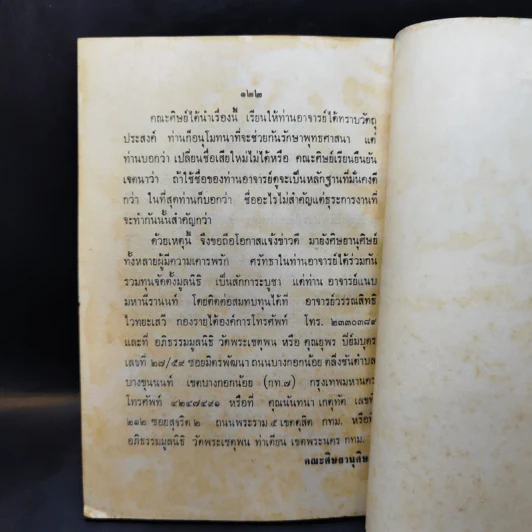 ๑๒๒
คณะศิษย์ได้นำเรื่องนี้ เรียนให้ท่านอาจารย์ได้ทราบวัตถุ
ประสงค์ ท่านก็อนุโมทนาที่จะช่วยกันรักษาพุทธศาสนา แต่
ท่านบอกว่า เปลี่ยนชื่อเสียใหม่ไม่ได้หรือ คณะศิษย์เรียนยืนยัน
เจตนาว่า ถ้าใช้ชื่อของท่านอาจารย์ดูจะเป็นหลักฐานที่มั่นคงดี
กว่า ในที่สุดท่านก็บอกว่า ชื่ออะไรไม่สำคัญแต่ธุระการงานที่
จะทำกันนั้นสำคัญกว่า
ด้วยเหตุนี้ จึงขอถือโอกาสแจ้งข่าวดี มายังศิษยานุศิษย์
ทั้งหลายผู้มีความเคารพรัก ศรัทธาในท่านอาจารย์ได้ร่วมกัน
รวมทุนจัดตั้งมูลนิธิ เป็นสักการะบูชา แด่ท่าน อาจารย์แนบ
มหานีรานนท์ โดยติดต่อสมทบทุนได้ที่ อาจารย์วรรณสิทธิ
ไวทยะเสวี กองรายได้องค์การโทรศัพท์ โทร. ๒๓๓๐๓๘๙
และที่ อภิธรรมมูลนิธิ วัดพระเชตุพน หรือ คุณยุพร ปิย์มบุตร
เลขที่ ๒๗/๕๙ ซอยมิตรพัฒนา ถนนบางกอกน้อย ตลิ่งชันตำบล
บางขุนนนท์ เขตบางกอกน้อย (กท.๗) กรุงเทพมหานคร
โทรศัพท์ ๔๒๔๗๔๙๑ หรือที่ คุณนันทนา เกตุทัต เลขที่
๒๑๒ ซอยสุจริต ๒ ถนนพระราม ๕ เขตดุสิต กทม. หรือที่
อภิธรรมมูลนิธิ วัดพระเชตุพน ท่าเตียน เขตพระนคร กทม.
คณะศิษยานุศิษ